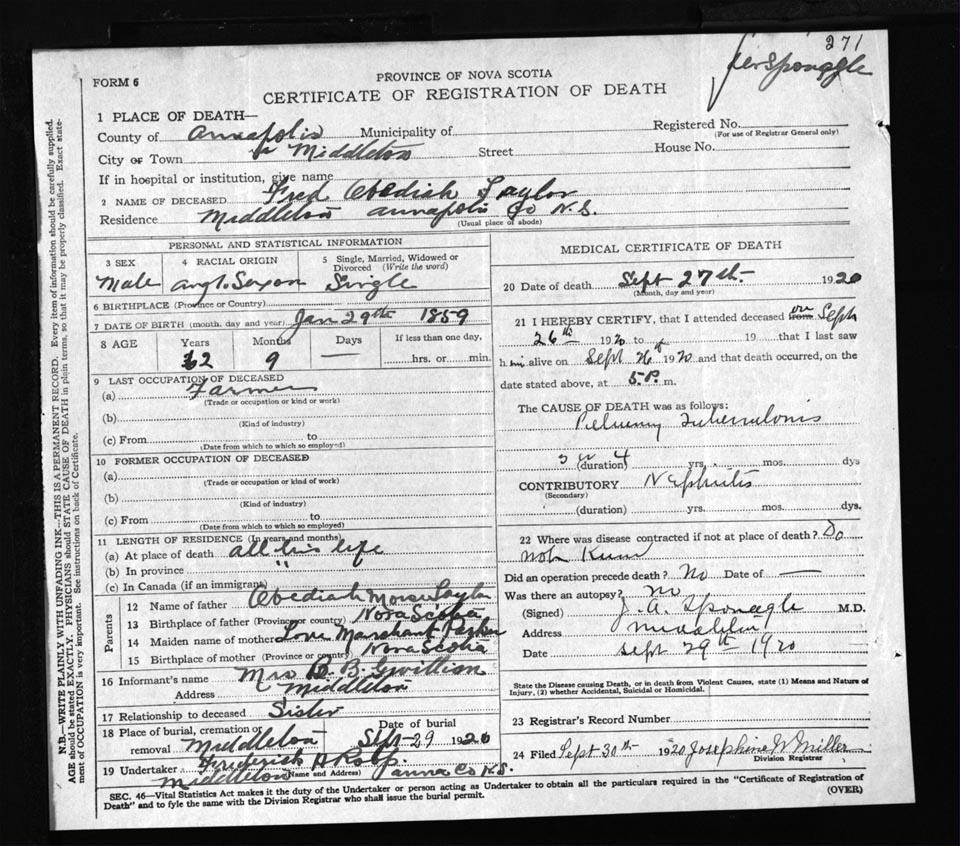 271
FORM 6
PROVINCE OF NOVA SCOTIA
CERTIFICATE OF REGISTRATION OF DEATH
1 PLACE OF DEATH—
County of Annapolis Municipality of
Registered No.
(For use of Registrar General only)
City or Town Middleton Street House No.
If in hospital or institution, give name
2 NAME OF DECEASED Fred Obediah Taylor
Residence Middleton Annapolis Co N.S.
(Usual place of abode)
PERSONAL AND STATISTICAL INFORMATION
3 SEX
Male
4 RACIAL ORIGIN
Anglo Saxon
5 Single, Married, Widowed or Divorced (Write the word)
Single
6 BIRTHPLACE (Province or Country)
7 DATE OF BIRTH (month, day and year) Jan 29th 1859
8 AGE Years Months Days If less than one day,
62 9 — hrs. or min.
9 LAST OCCUPATION OF DECEASED
(a) Farmer
(Trade or occupation or kind or work)
(b)
(Kind of industry)
(c) From to
(Date from which to which so employed)
10 FORMER OCCUPATION OF DECEASED
(a)
(Trade or occupation or kind of work)
(b)
(Kind of industry)
(c) From to
(Date from which to which so employed)
11 LENGTH OF RESIDENCE (In years and months)
(a) At place of death all his life
(b) In province "
(c) In Canada (if an immigrant)
Parents
12 Name of father Obediah Morse Taylor
13 Birthplace of father (Province or country) Nova Scotia
14 Maiden name of mother Marchant Parker
15 Birthplace of mother (Province or country) Nova Scotia
16 Informant's name Mrs B. B.
Address Middleton
17 Relationship to deceased Sister
18 Place of burial, cremation or removal Middleton
Date of burial Sept 29 1920
19 Undertaker Frederick A Roop.
Middleton (Name and Address) Anna Co N.S.
MEDICAL CERTIFICATE OF DEATH
20 Date of death Sept 27th 1920
(Month, day and year)
21 I HEREBY CERTIFY, that I attended deceased from on Sept
26th 1920 to 19 that I last saw
him alive on Sept 26 1920 and that death occurred, on the
date stated above, at 5 P. m.
The CAUSE OF DEATH was as follows:
Pulmonary Tuberculosis
3 or 4
(duration) yrs. mos. dys
CONTRIBUTORY Nephritis
(Secondary)
(duration) yrs. mos. dys.
22 Where was disease contracted if not at place of death? Do
not know
Did an operation precede death? No Date of —
Was there an autopsy? No
(Signed) J. A. Sponagle M.D.
Address Middleton
Date Sept 29th 1920
State the Disease causing Death, or in death from Violent Causes, state (1) Means and Nature of
Injury, (2) whether Accidental, Suicidal or Homicidal.
23 Registrar's Record Number
24 Filed Sept 30th 1920 Josephine W Miller
Division Registrar
SEC. 46—Vital Statistics Act makes it the duty of the Undertaker or person acting as Undertaker to obtain all the particulars required in the "Certificate of Registration of
Death" and to fyle the same with the Division Registrar who shall issue the burial permit.
(OVER)
N.B.—WRITE PLAINLY WITH UNFADING INK—THIS IS A PERMANENT RECORD. Every item of information should be carefully supplied.
AGE should be stated EXACTLY. PHYSICIANS should STATE CAUSE OF DEATH in plain terms, so that it may be properly classified. Exact state-
ment of OCCUPATION is very important. See instructions on back of Certificate.